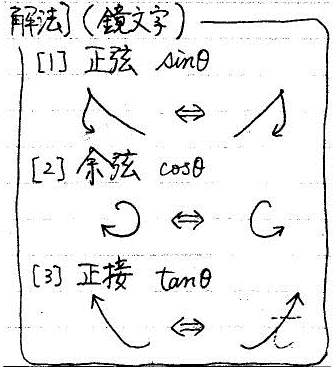 解法](鏡文字)
[1] 正弦 sinθ
⇔
[2] 余弦 cosθ
⇔
[3] 正接 tanθ
⇔ t